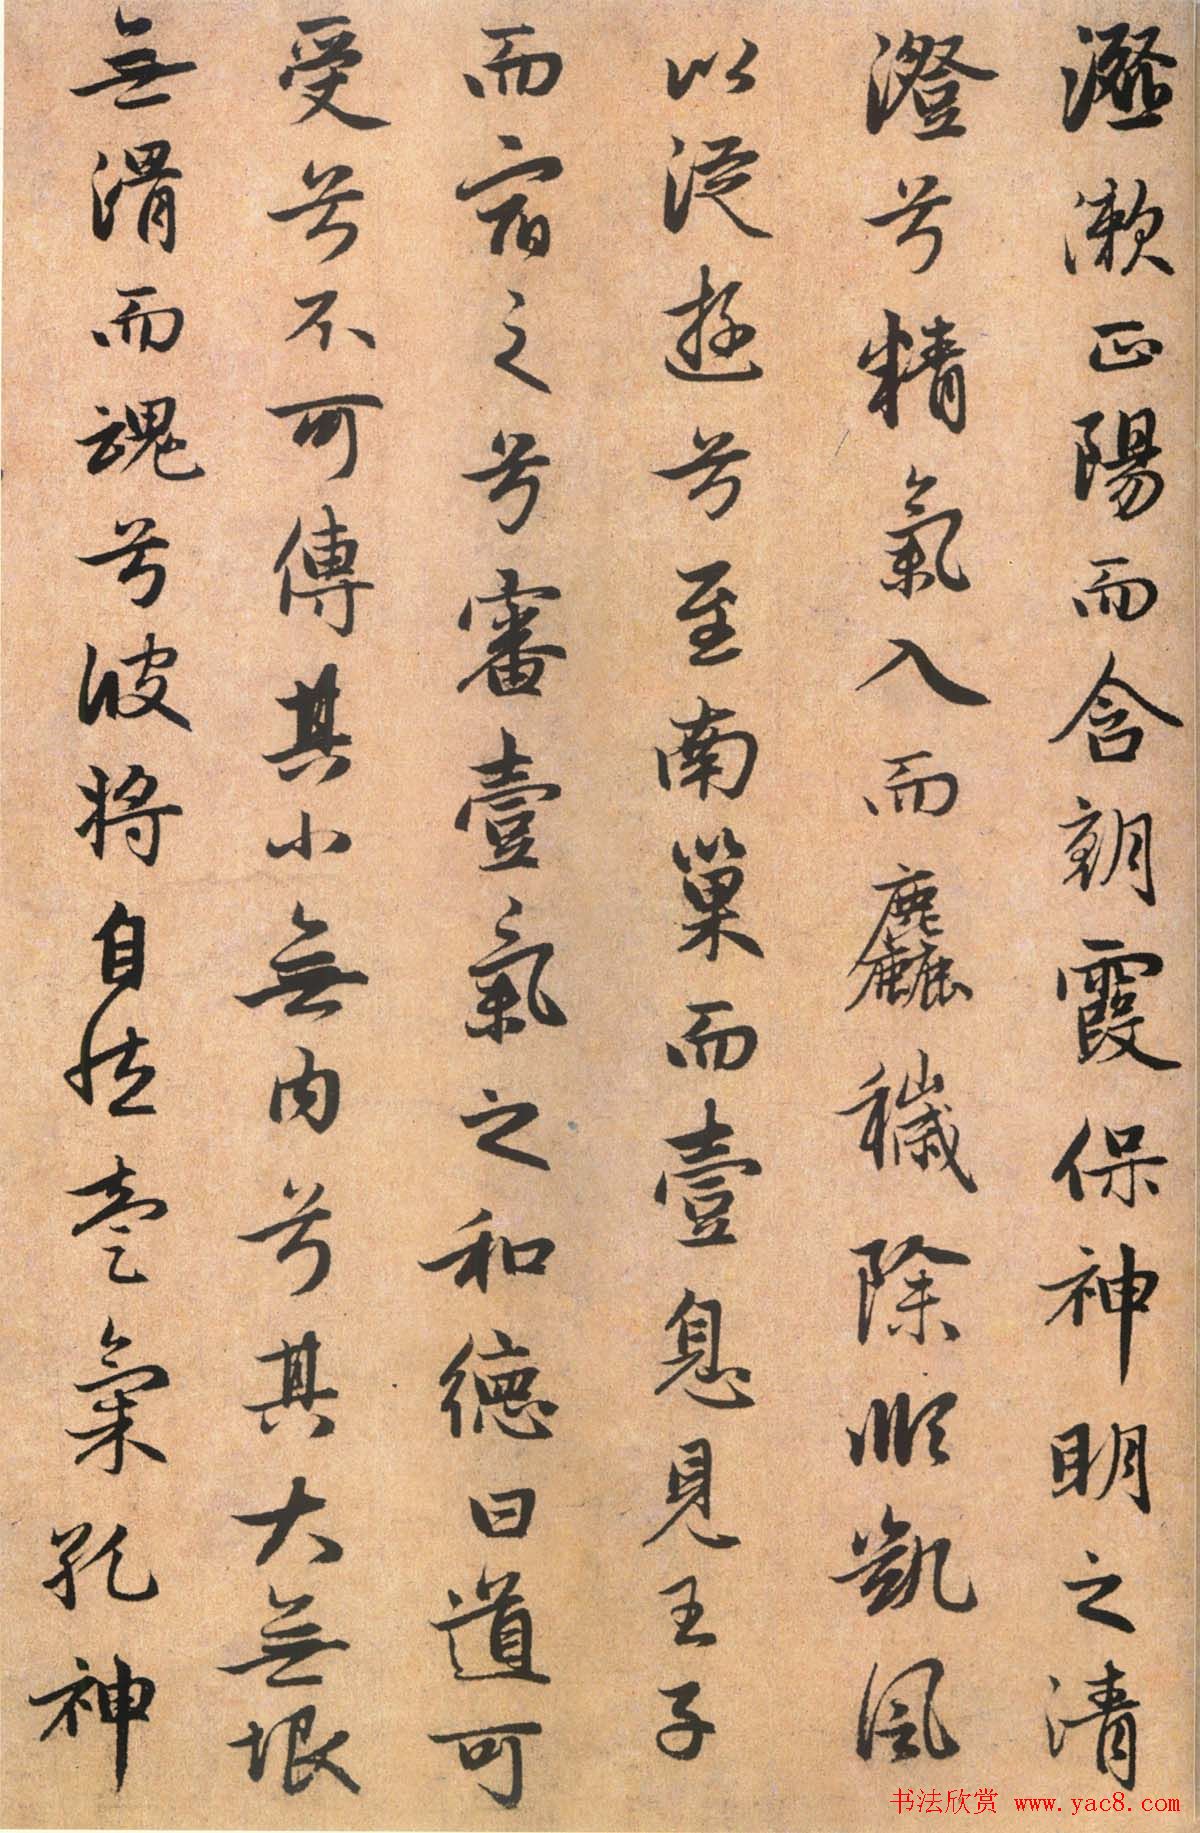 瀣漱正陽而含朝霞保神明之清
澄兮精氣入而麤穢除順凱風
以從遊兮至南巢而壹息見王子
而宿之兮審壹氣之和德曰道可
受兮不可傳其小無内兮其大無垠
無滑而魂兮彼將自然壹氣孔神
书法欣赏 www.yac8.com